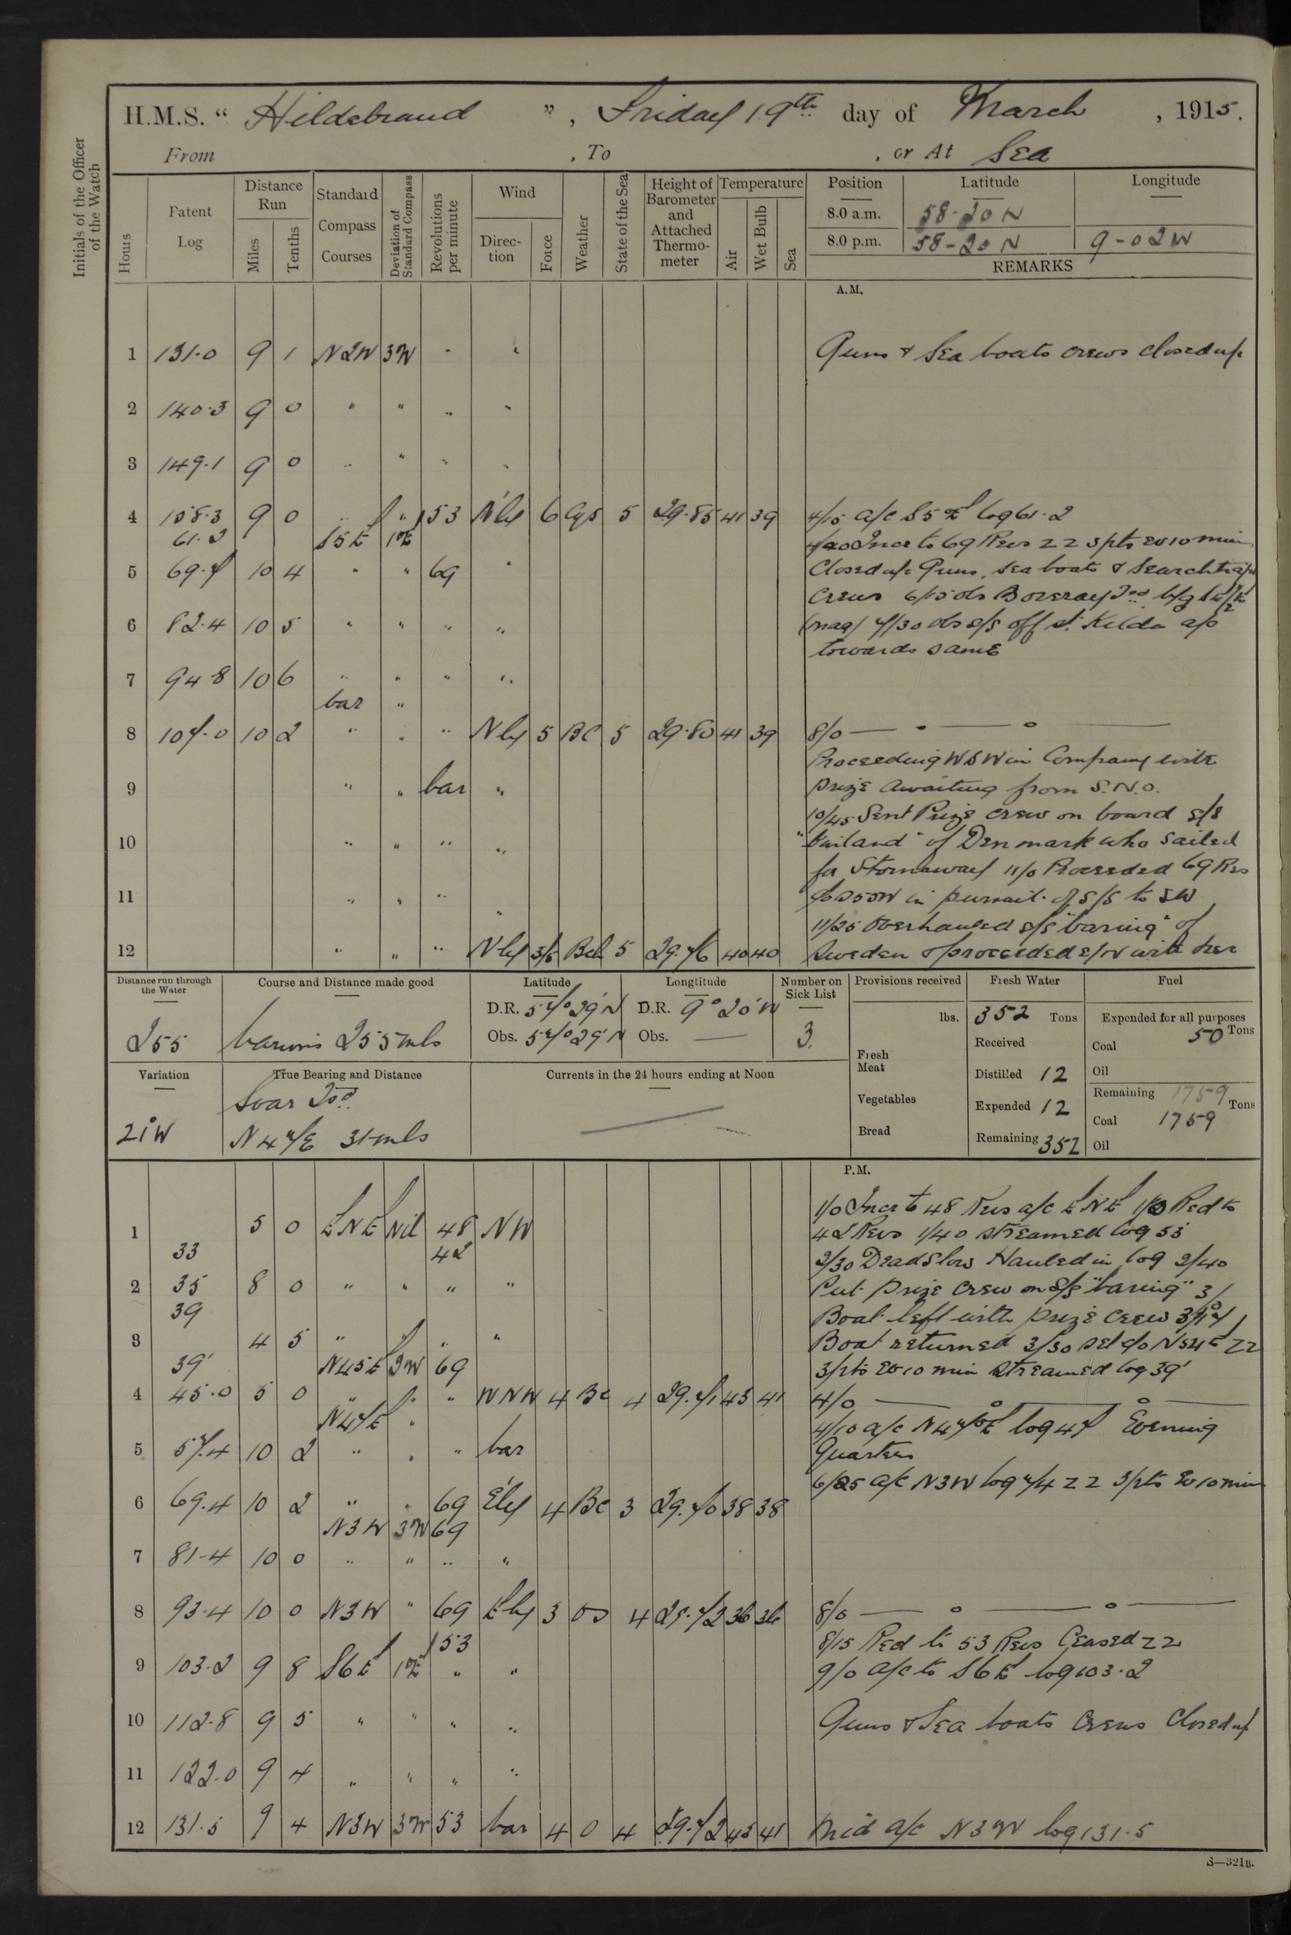 H.M.S. “ Hildebrand ”, Friday 19th day of March, 1915.
From , To , or At Sea
Initials of the Officer of the Watch
Hours
Patent Log
Distance Run
Miles
Tenths
Standard Compass Courses
Deviation of Standard Compass
Revolutions per minute
Wind
Direction
Force
Weather
State of the Sea
Height of Barometer and Attached Thermometer
Temperature
Air
Wet Bulb
Sea
Position Latitude Longitude
8.0 a.m. 58-20 N
8.0 p.m. 58-20 N 9-02 W
REMARKS
A.M.
1 131.0 9 1 N2W 3W " " Guns & Sea boats crews closed up
2 140.3 9 0 " " " "
3 149.1 9 0 " " " "
4 158.3 9 0 " " 53 N'ly 6 5 29.85 41 39 4/15 a/c S5E log 61.2
61.2 S5E 1E 4/20 Incr to 69 Revs ZZ 3pts ev 10 min
5 69.7 10 4 " " 69 " Closed up Guns, Sea boats & Searchlight
Crews 6/15 obs Boreray
6 82.4 10 5 " " " " (mag) 7/30 obs s/s off St. Kilda a/c
towards same
7 94.8 10 6 " " " "
var "
8 107.0 10 2 " " " N'ly 5 BC 5 29.80 41 39 8/0
Proceeding WSW in Company with
9 " " var " prize awaiting from S.N.O.
10/45 Sent Prize crew on board s/s
10 " " " " of Denmark who sailed
for Stornoway 11/0 Proceeded 69 Revs
11 " " " " SSW in pursuit of s/s to SW
11/25 Overhauled s/s "Waring" of
12 " " " N'ly 5 29.76 40 40 Sweden & proceeded with her
Distance run through the Water
255
Course and Distance made good
various 255 mls
Latitude
D.R. 57° 29' N
Obs. 57° 29' N
Longtitude
D.R. 9° 20' W
Obs. —
Number on Sick List
3.
Provisions received
lbs.
Fresh Meat
Vegetables
Bread
Fresh Water
352 Tons
Received
Distilled 12
Expended 12
Remaining 352
Fuel
Expended for all purposes
Coal 50 Tons
Oil
Remaining 1759 Tons
Coal 1759
Oil
Variation
21°W
True Bearing and Distance
Soay
N47E 31 mls
Currents in the 24 hours ending at Noon
—
P.M.
1/0 Incr to 48 Revs a/c ENE Red to
1 5 0 ENE Nil 48 NW 42 Revs 1/40 streamed log 33
33 42 2/30 Dead Slow Hauled in log 2/40
2 35 8 0 " " " " Put prize crew on s/s "Waring" 3/
39 Boat left with prize crew
3 4 5 " " " Boat returned 3/30 set c/o ZZ
39 N45E 3W 69 3pts ev 10 min streamed log 39
4 45.0 5 0 " " " WNW 4 BC 4 29.71 43 41 4/0
N47E " 4/10 a/c N47E log 47 Evening
5 57.4 10 2 " " " var Quarters
6/25 a/c N3W log 74 ZZ 3pts ev 10 min
6 69.4 10 2 " " 69 E'ly 4 BC 3 29.70 38 38
N3W 3W 69
7 81.4 10 0 " " " "
8 93.4 10 0 N3W " 69 E'ly 3 4 29.72 36 36 8/0
53 8/15 Red to 53 Revs Ceased ZZ
9 103.2 9 8 S6E 1E " " 9/0 a/c to S6E log 103.2
10 112.8 9 5 " " " " Guns & Sea boats Crews Closed up
11 122.0 9 4 " " " "
12 131.5 9 4 N3W 3W 53 var 4 O 4 29.72 43 41 Mid a/c N3W log 131.5
S—321B.